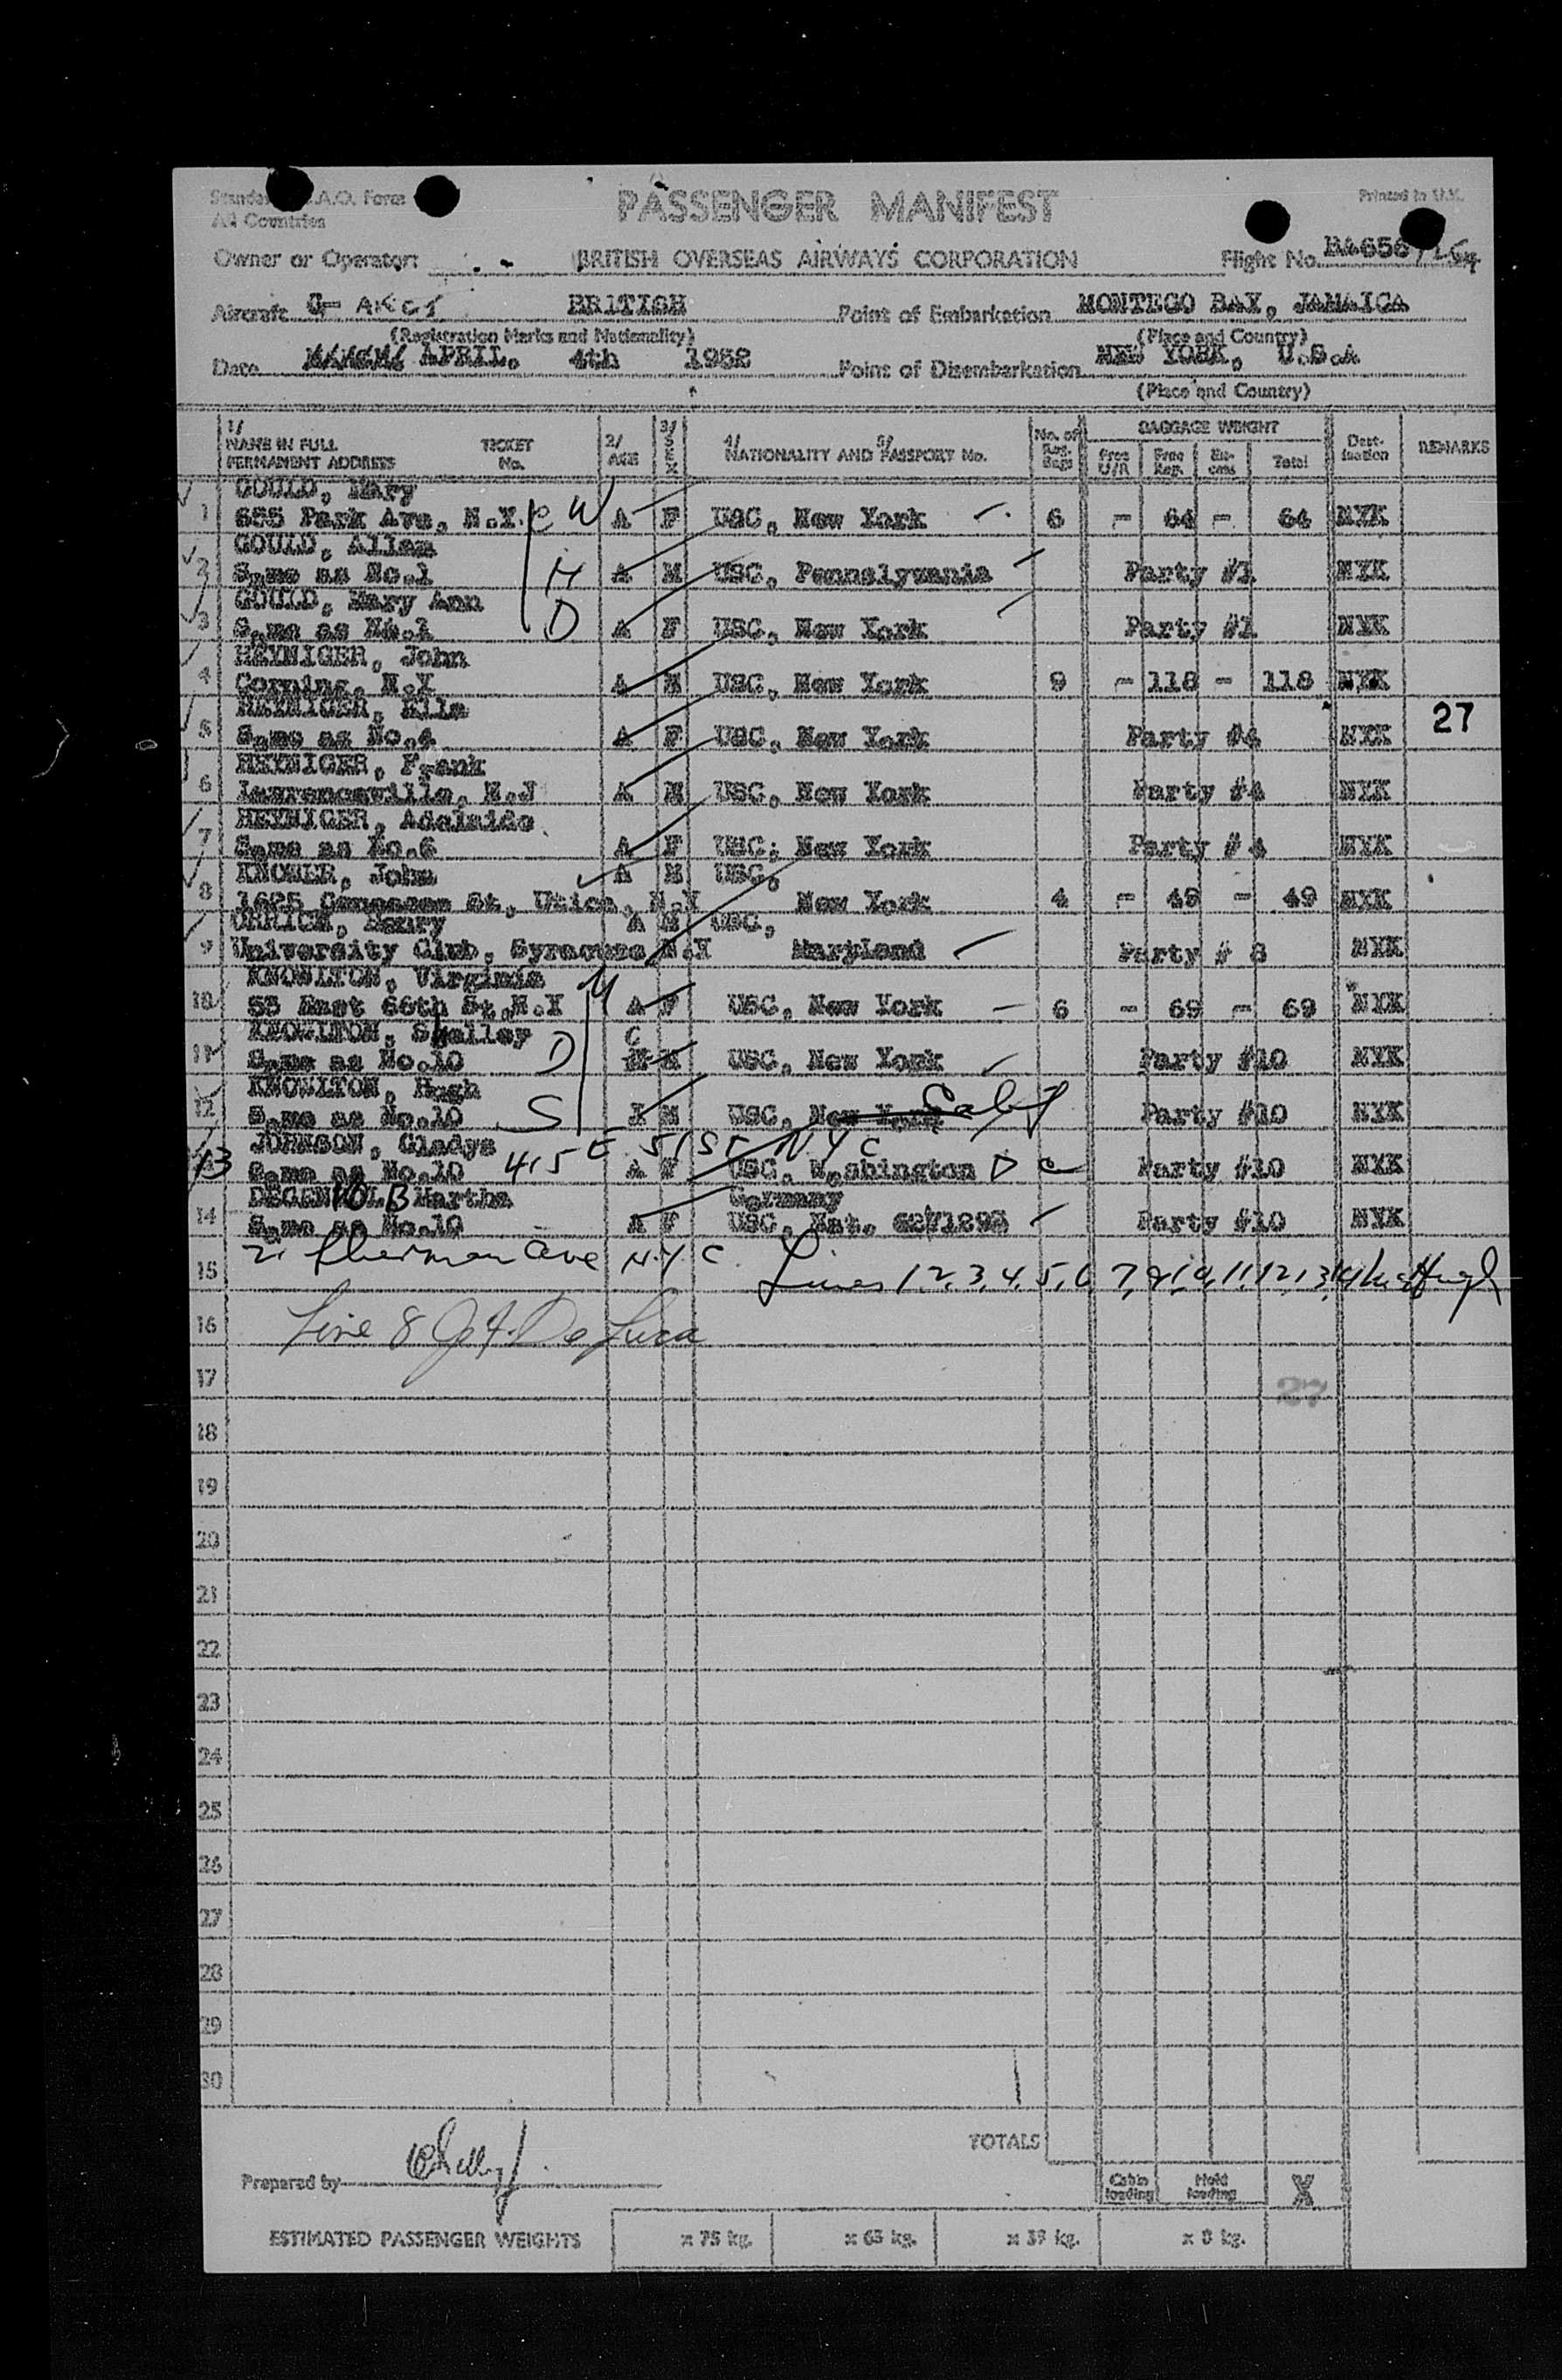 PASSENGER MANIFEST
Printed in U.K.
All Countries
Owner or Operator: BRITISH OVERSEAS AIRWAYS CORPORATION Flight No. BA656/264
Aircraft G- AKGJ BRITISH Point of Embarkation MONTEGO BAY, JAMAICA
(Registration Marks and Nationality) (Place and Country)
Date APRIL, 4th 1952 Point of Disembarkation NEW YORK, U.S.A
(Place and Country)
1/ NAME IN FULL PERMANENT ADDRESS TICKET No. 2/ AGE 3/ SEX 4/ 5/ NATIONALITY AND PASSPORT No. No. of Reg. Bags BAGGAGE WEIGHT Free U/R Free Reg. Ex-cess Total Dest-ination REMARKS
GOULD, Mary
1 655 Park Ave, N.Y. C W A F USC, New York 6 - 64 - 64 NYK
GOULD, Allam
2 Same as No.1 H A M USC, Pennslyvania Party #1 NYK
GOULD, Mary Ann
3 Same as No.1 D A F USC, New York Party #1 NYK
HEYNIGER, John
4 Corning, N.Y A M USC, New York 9 - 118 - 118 NYK
HEYNIGER, Ella
5 Same as No.4 A F USC, New York Party #4 NYK 27
HEYNIGER, Frank
6 Lawrenceville, N.J A M USC, New York Party #4 NYK
HEYNIGER, Adelaide
7 Same as No.6 A F USC, New York Party #4 NYK
KNOWER, John A M USC,
8 1625 Genessee St, Utica, N.Y New York 4 - 49 - 49 NYK
Henry A M USC,
9 University Club, Syracuse N.Y Maryland Party # 8 NYK
KNOWLTON, Virginia
10 55 East 66th St, N.Y M A F USC, New York 6 - 69 - 69 NYK
KNOWLTON, Shelley C
11 Same as No.10 D USC, New York Party #10 NYK
KNOWLTON, Hugh
12 Same as No.10 S M USC, New York Calif Party #10 NYK
JOHNSON, Gladys
13 Same as No.10 415 E 51 St N Y C A F USC, Washington D C Party #10 NYK
Martha Germany
14 Same as No.10 A F USC, Nat. Party #10 NYK
21 Sherman Ave N.Y.C.
15 Lines 1,2,3,4,5,6,7,9,10,11,12,13,14
16 Line 8 De Luca
17
27
18
19
20
21
22
23
24
25
26
27
28
29
30
TOTALS
Prepared by
Cabin loading Hold loading X
ESTIMATED PASSENGER WEIGHTS x 75 kg. x 65 kg. x 39 kg. x 8 kg.